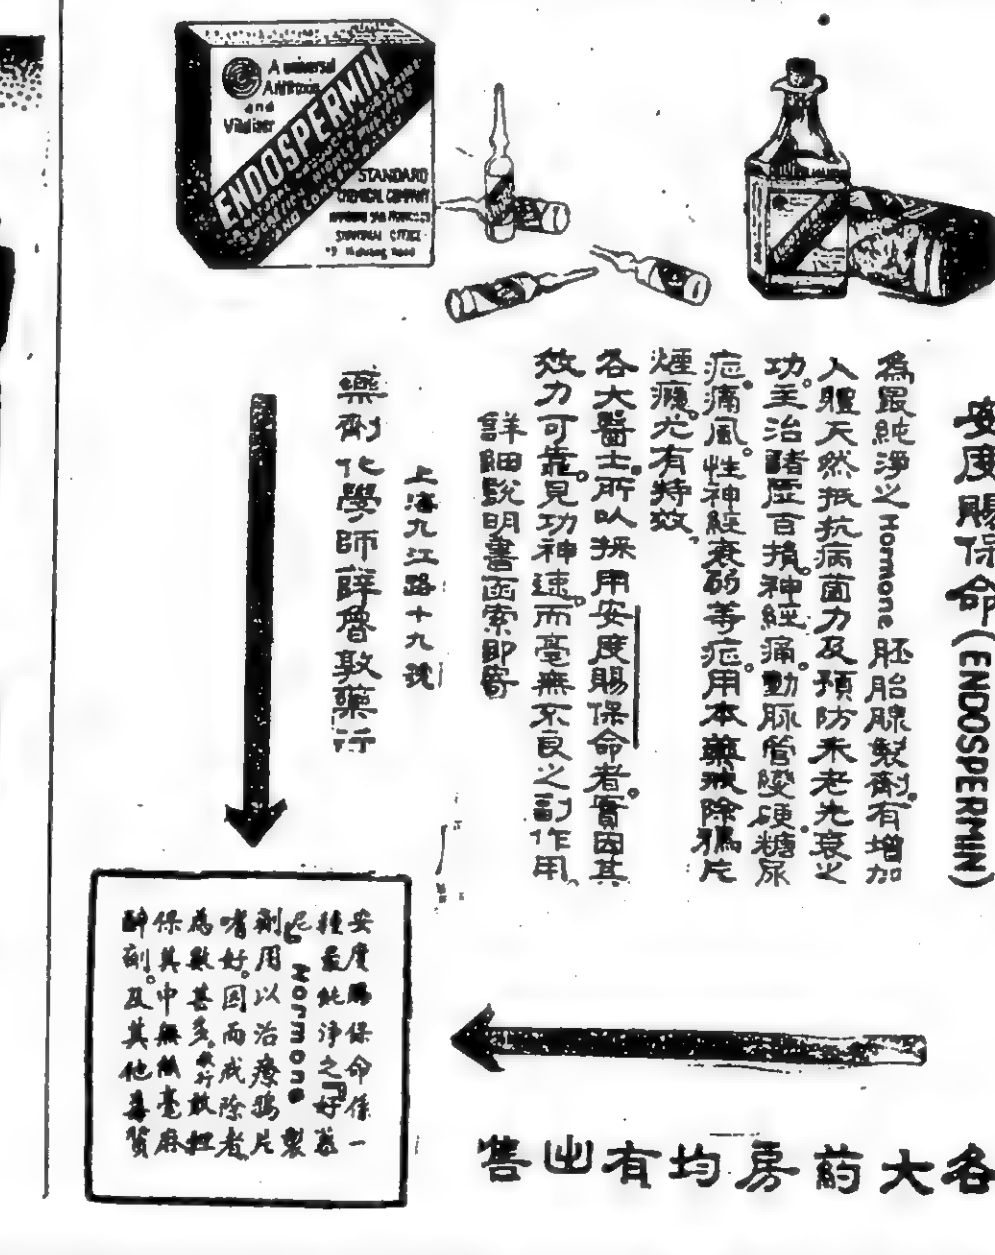 A universal
and
Vitalizer
ENDOSPERMIN
STANDARD
CHEMICAL COMPANY
安度賜保命(ENDOSPERMIN)
為最純淨之Hormone胚胎腺製劑。有增加
人體天然抵抗病菌力及預防未老先衰之
功。主治諸虛百損。神經痛。動脈管變硬。糖尿
症。痛風。性神經衰弱等症。用本藥戒除鴉片
煙癮。尤有特效。
各大醫士所以採用安度賜保命者。實因其
效力可靠。見功神速。而毫無不良之副作用。
詳細說明書函索即寄
上海九江路十九號
藥劑化學師薛魯敦藥行
安度賜保命係一
種最純淨之好蒙
尼 Hormone 製
劑用以治療鴉片
嗜好。因而戒除者
為數甚多。敝行敢担
保其中無絲毫麻
醉劑。及其他毒質
各大葯房均有出售